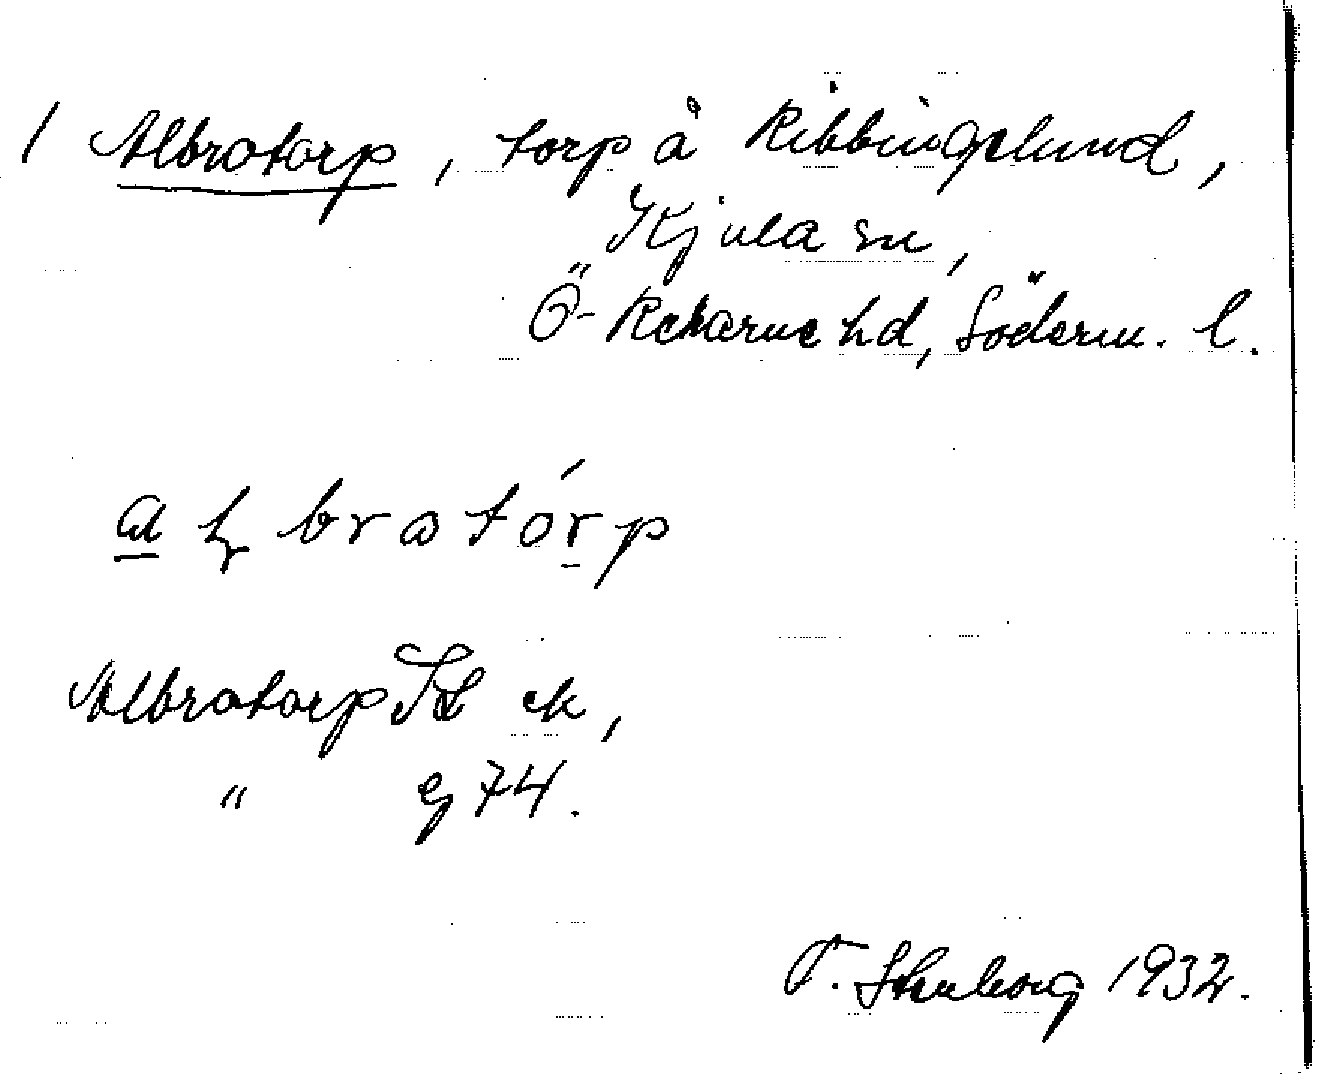 / Albratorp, torp å Ribbingelund,
Kjula sn,
Ö-Rekarne hd, Söderm. l.
bratórp
Albratorp ek,
" ej 74.
T. Stenborg 1932.